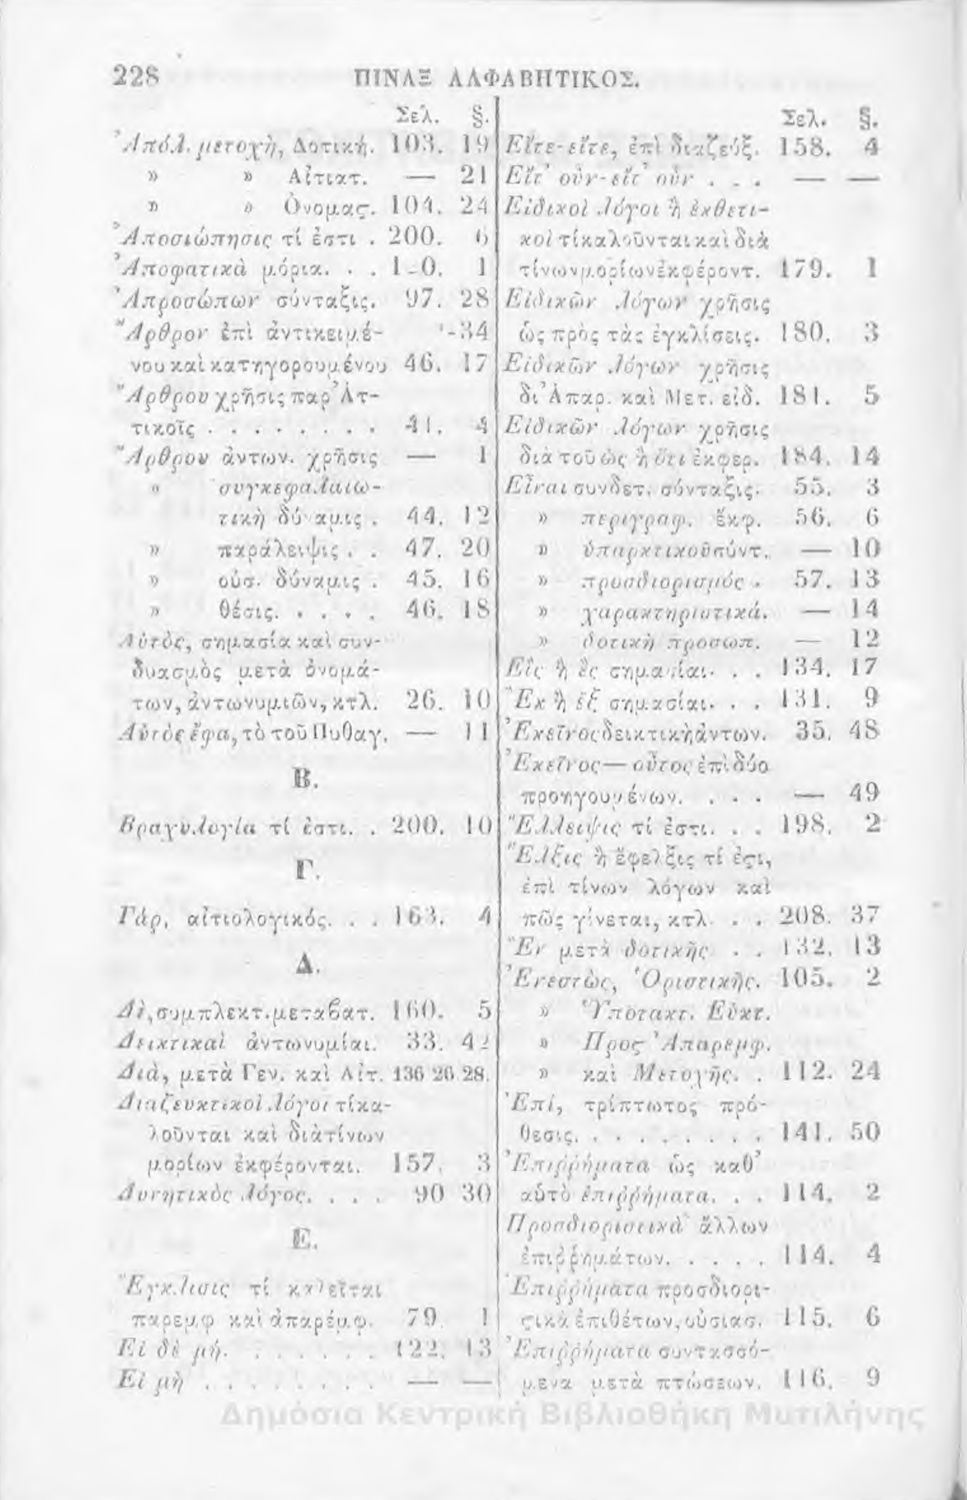 228 ΠΙΝΑΞ ΑΛΦΑΒΗΤΙΚΟΣ.
Σελ. §.
Ἀπόλ. μετοχὴ, Δοτική. 103. 19
» » Αἰτιατ. — 21
» » Ὀνομας. 104. 24
Ἀποσιώπησις τί ἐστι . 200. 6
Ἀποφατικὰ μόρια. . . 1
Ἀπροσώπων σύνταξις. 97. 28
Ἄρθρον ἐπὶ ἀντικειμέ- -34
νου καὶ κατηγορουμένου 46. 17
Ἄρθρου χρῆσις παρ’ Ἀτ-
τικοῖς . . . . . . . . 41. 4
Ἄρθρου ἀντων. χρῆσις — 1
» συγκεφαλαιω-
τικὴ δύναμις . 44. 12
» παράλειψις . . 47. 20
» οὐσ. δύναμις . 45. 16
» θέσις. . . . . 46. 18
Αὐτὸς, σημασία καὶ συν-
δυασμὸς μετὰ ὀνομά-
των, ἀντωνυμιῶν, κτλ. 26. 10
Αὐτὸς ἔφα, τὸ τοῦ Πυθαγ. — 11
Β.
Βραχυλογία τί ἐστι. . 200. 10
Γ.
Γὰρ, αἰτιολογικός. . . 163. 4
Δ.
Δὲ, συμπλεκτ. μεταβατ. 160. 5
Δεικτικαὶ ἀντωνυμίαι. 33. 42
Διὰ, μετὰ Γεν. καὶ Αἰτ. 136 26 28.
Διαζευκτικοὶ λόγοι τί κα-
λοῦνται καὶ διὰ τίνων
μορίων ἐκφέρονται. 157. 3
Δυνητικὸς λόγος. . . . 90 30
Ε.
Ἔγκλισις τί καλεῖται
παρεμφ καὶ ἀπαρέμφ. 79. 1
Εἰ δὲ μή. . . . . . . 122. 13
Εἰ μὴ . . . . . . . . — —
Σελ. §.
Εἴτε-εἴτε, ἐπὶ διαζεύξ. 158. 4
Εἴτ’ οὖν-εἴτ’ οὖν . . . — —
Εἰδικοὶ λόγοι ἢ ἐκθετι-
κοὶ τί καλοῦνται καὶ διὰ
τίνων μορίων ἐκφέροντ. 179. 1
Εἰδικῶν λόγων χρῆσις
ὡς πρὸς τὰς ἐγκλίσεις. 180. 3
Εἰδικῶν λόγων χρῆσις
δι’ Ἀπαρ. καὶ Μετ. εἰδ. 181. 5
Εἰδικῶν λόγων χρῆσις
διὰ τοῦ ὡς ἢ ὅτι ἐκφερ. 184. 14
Εἶναι συνδετ. σύνταξις. 55. 3
» περιγραφ. ἔκφ. 56. 6
» ὑπαρκτικοῦ σύντ. — 10
» προσδιορισμός . 57. 13
» χαρακτηριστικά. — 14
» δοτικὴ προσωπ. — 12
Εἰς ἢ ἐς σημασίαι. . . 134. 17
Ἐκ ἢ ἐξ σημασίαι. . . 131. 9
Ἐκεῖνος δεικτικὴ ἀντων. 35. 48
Ἐκεῖνος — οὗτος ἐπὶ δύο
προηγουμένων. . . . — 49
Ἔλλειψις τί ἐστι. . . 198. 2
Ἕλξις ἢ ἔφελξις τί ἐςι,
ἐπὶ τίνων λόγων καὶ
πῶς γίνεται, κτλ. . . 208. 37
Ἐν μετὰ δοτικῆς . . 132. 13
Ἐνεστὼς, Ὁριστικῆς. 105. 2
» Ὑποτακτ. Εὐκτ.
» Προς Ἀπαρεμφ.
» καὶ Μετοχῆς. . 112. 24
Ἐπὶ, τρίπτωτος πρό-
θεσις. . . . . . . . . 141. 50
Ἐπιῤῥήματα ὡς καθ’
αὑτὸ ἐπιῤῥήματα. . . 114. 2
Προσδιοριστικὰ ἄλλων
ἐπιῤῥημάτων. . . . . 114. 4
Ἐπιῤῥήματα προσδιορι-
ςικὰ ἐπιθέτων, οὐσιασ. 115. 6
Ἐπιῤῥήματα συντασσό-
μενα μετὰ πτώσεων. 116. 9
Δημόσια Κεντρική Βιβλιοθήκη Μυτιλήνης